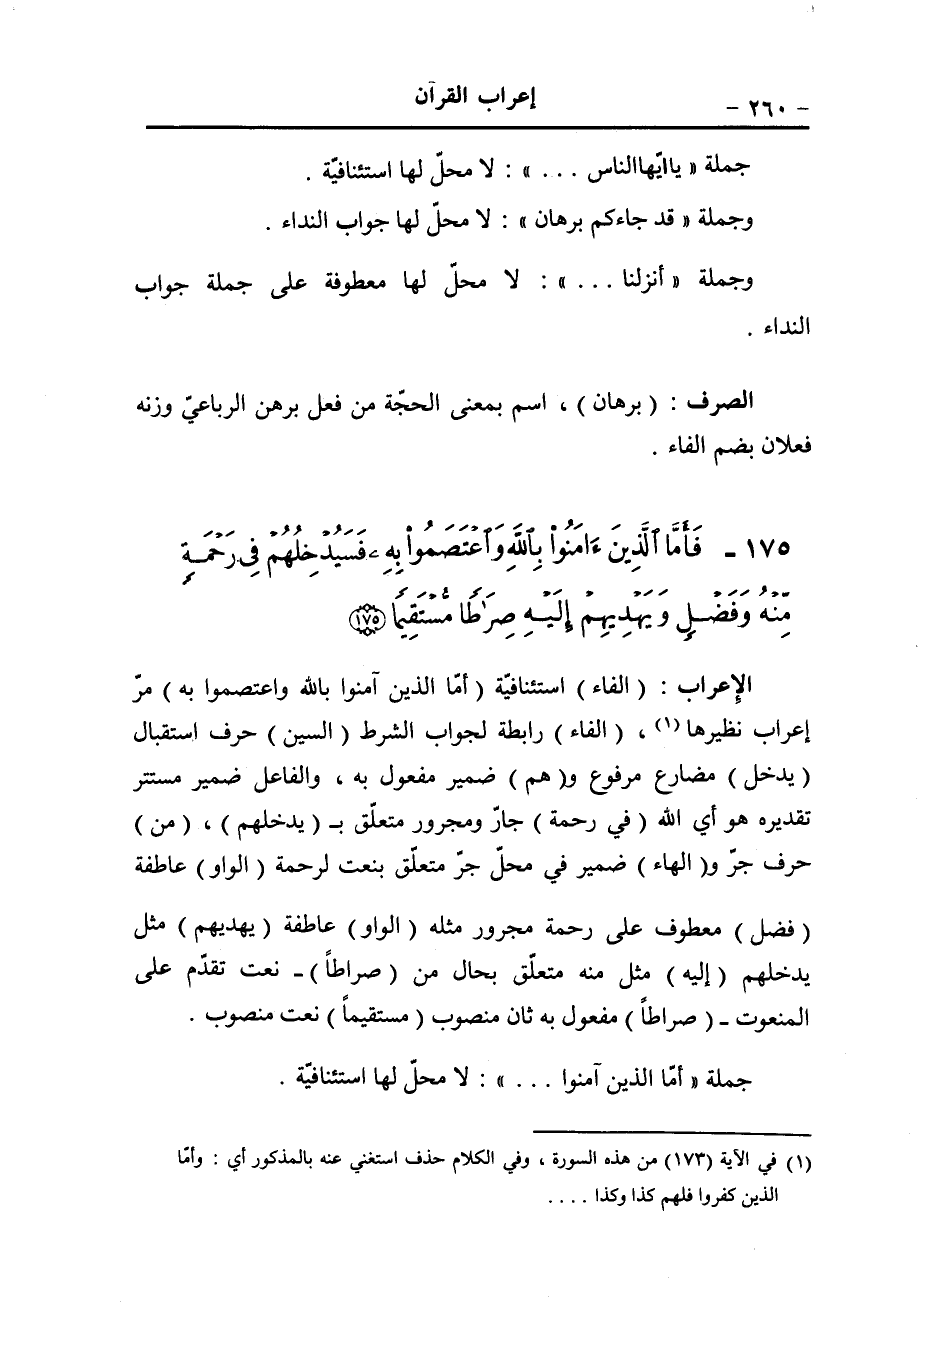 - ٢٦٠ - إعراب القرآن
جملة « ياايّهاالناس . . . » : لا محلّ لها استئنافيّة .
وجملة « قد جاءكم برهان » : لا محلّ لها جواب النداء .
وجملة « أنزلنا . . . » : لا محلّ لها معطوفة على جملة جواب
النداء .
الصرف : ( برهان ) ، اسم بمعنى الحجّة من فعل برهن الرباعيّ وزنه
فعلان بضم الفاء .
١٧٥ - فَأَمَّا ٱلَّذِينَ ءَامَنُواْ بِٱللَّهِ وَٱعْتَصَمُواْ بِهِۦ فَسَيُدْخِلُهُمْ فِى رَحْمَةٍ
مِّنْهُ وَفَضْلٍ وَيَهْدِيهِمْ إِلَيْهِ صِرَٰطًا مُّسْتَقِيمًا ﴿١٧٥﴾
الإعراب : ( الفاء ) استئنافيّة ( أمّا الذين آمنوا بالله واعتصموا به ) مرّ
إعراب نظيرها(١) ، ( الفاء ) رابطة لجواب الشرط ( السين ) حرف استقبال
( يدخل ) مضارع مرفوع و( هم ) ضمير مفعول به ، والفاعل ضمير مستتر
تقديره هو أي الله ( في رحمة ) جارّ ومجرور متعلّق بـ ( يدخلهم ) ، ( من )
حرف جرّ و( الهاء ) ضمير في محلّ جرّ متعلّق بنعت لرحمة ( الواو ) عاطفة
( فضل ) معطوف على رحمة مجرور مثله ( الواو ) عاطفة ( يهديهم ) مثل
يدخلهم ( إليه ) مثل منه متعلّق بحال من ( صراطاً ) - نعت تقدّم على
المنعوت - ( صراطاً ) مفعول به ثان منصوب ( مستقيماً ) نعت منصوب .
جملة « أمّا الذين آمنوا . . . » : لا محلّ لها استئنافيّة .
(١) في الآية (١٧٣) من هذه السورة ، وفي الكلام حذف استغني عنه بالمذكور أي : وأمّا
الذين كفروا فلهم كذا وكذا . . . .